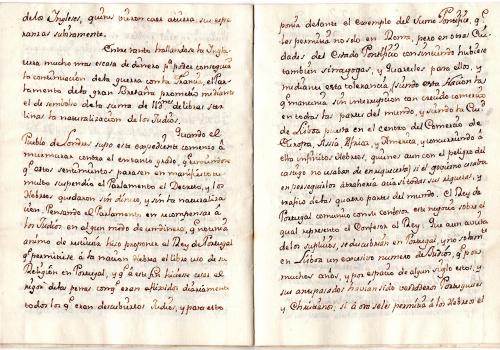 de los Ingleses, quienes vieron caer a tierra sus espe-
ranzas subitamente.
Entre tanto hallandose la Ingla-
terra mucho mas escasa de dinero pa poder conseguir
la continuacion de la guerra contra la Francia, el Par-
lamento de la gran Bretaña prometió mediante
el desembolso de la suma de de libras ster-
linas la naturalizacion de los Judios.
Quando el
Pueblo de Londres supo este expediente comenzó á
murmurar contra el entanto grado, qe
qe estos sentimientos parasen en manifiesto tu-
multo suspendió el Parlamento el Decreto, y los
Hebreos quedaron sin dinero, y sin la naturaliza-
cion. Pensando el Parlamento en recompensar á
los Judios en algun modo de un dinero, qe no tenia
animo de restituir hizo proponer el Rey de Portugal
qe permitiese á la nacion hebrea el libre uso de su
Religion en Portugal, y qe en su fin hiciese cesar el
rigor de las penas con qe eran afligidos diariamente
todos los qe eran descubiertos Judios, y para esto
ponia delante el exemplo del Sumo Pontifice, qe
les permitia no solo en Roma, pero en otras Ciu-
dades del Estado Pontificio consintiendo hubiese
tambien sinagogas, y Guarteles para ellos, y
mediante esta tolerancia, siendo esta Nacion la
qe mantenia sin interrupcion tan crecido comercio
en todas las partes del mundo, y siendo la Ciud
de Lisboa puesta en el centro del Comercio de
Europa, Assia, Africa, y America, y concurriendo á
ella infinitos Hebreos, quienes aun con el peligro del
castigo no usaban de enriquecerla; si el govierno cesaba
en perseguirlos atraheria a si todas sus riquezas, y
trafico de las quatro partes del mundo. El Rey de
Portugal comunicó con su confesor este negocio sobre el
qual represento el Confesor al Rey: Que aun a vista
de los suplicios, se discubrian en Portugal, y no solamte
en Lisboa un excesivo numero de Judios, qe por
muchos años, y por espacio de algun siglo estos, y
sus antepasados havian sido verdaderos Portugueses
y Christianos; si á ora se les permitia á los Hebreos el